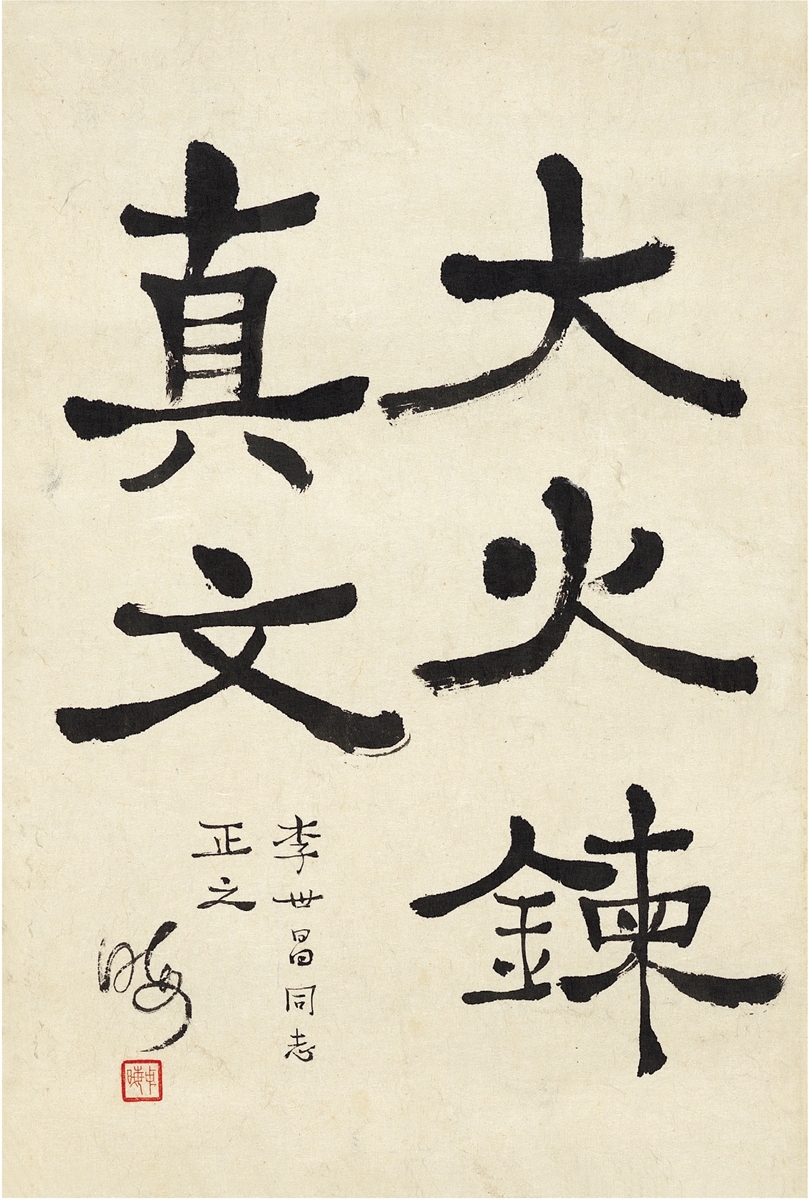 大火鍊
真文
李世昌同志
正之
晦